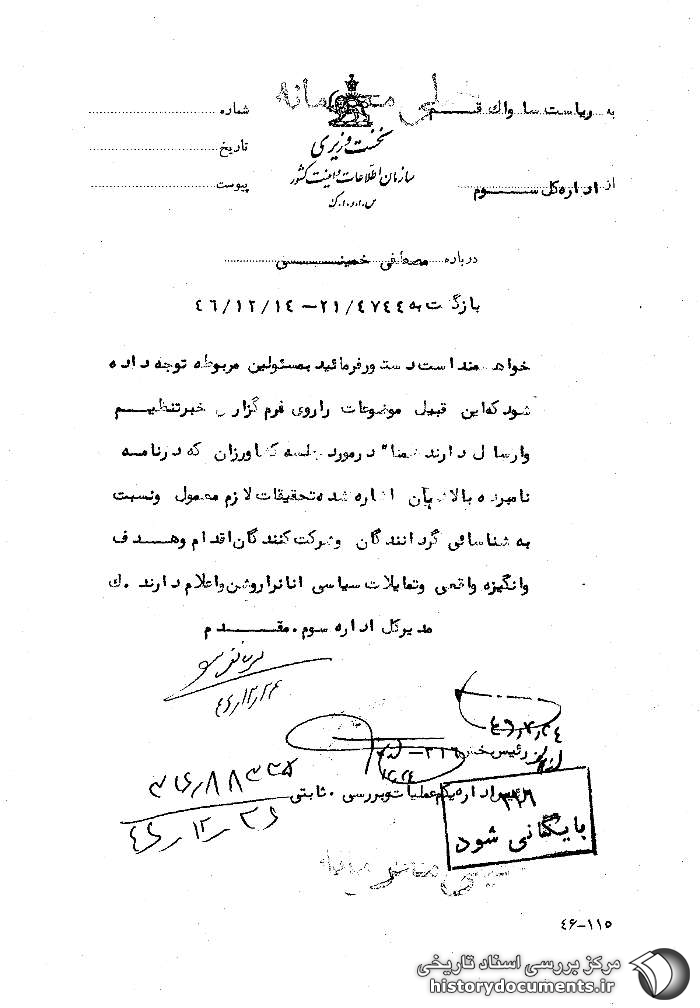 خیلی محرمانه
به ریاست ساواک قم
شماره
نخست وزیری
تاریخ
سازمان اطلاعات و امنیت کشور
از اداره کل سوم
پیوست
س.ا.و.ا.ک
درباره مصطفی خمینی
بازگشت به ۲۱/۴۷۴۴ - ۴۶/۱۲/۱۴
خواهشمند است دستور فرمائید بمسئولین مربوطه توجه داده
شود که این قبیل موضوعات را روی فرم گزارش خبر تنظیم
و ارسال دارند ضمناً در مورد جلسه کشاورزان که در نامه
نامبرده بالا بدان اشاره شده تحقیقات لازم معمول و نسبت
به شناسائی گردانندگان و شرکت کنندگان اقدام و هدف
و انگیزه واقعی و تمایلات سیاسی آنانرا روشن و اعلام دارند . ک
مدیرکل اداره سوم . مقدم
رئیس بخش ۳۱۶
رئیس اداره یکم عملیات و بررسی . ثابتی
۳۱۶
بایگانی شود
خیلی محرمانه
۴۶-۱۱۵
مرکز بررسی اسناد تاریخی
historydocuments.ir